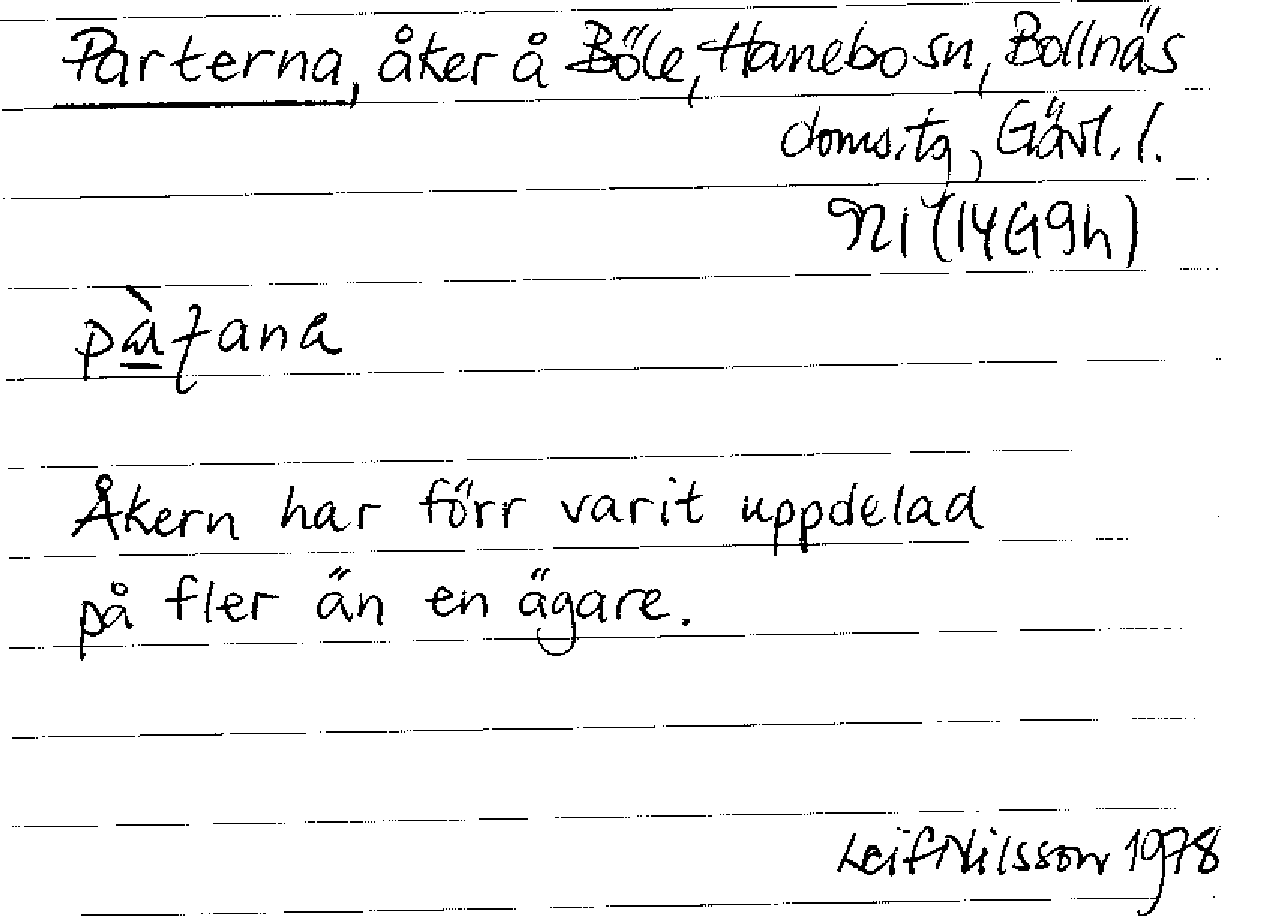 Parterna, åker å Böle, Hanebo sn, Bollnäs
doms.tg, Gävl. l.
21 (14G9h)
Åkern har förr varit uppdelad
på fler än en ägare.
Leif Nilsson 1978